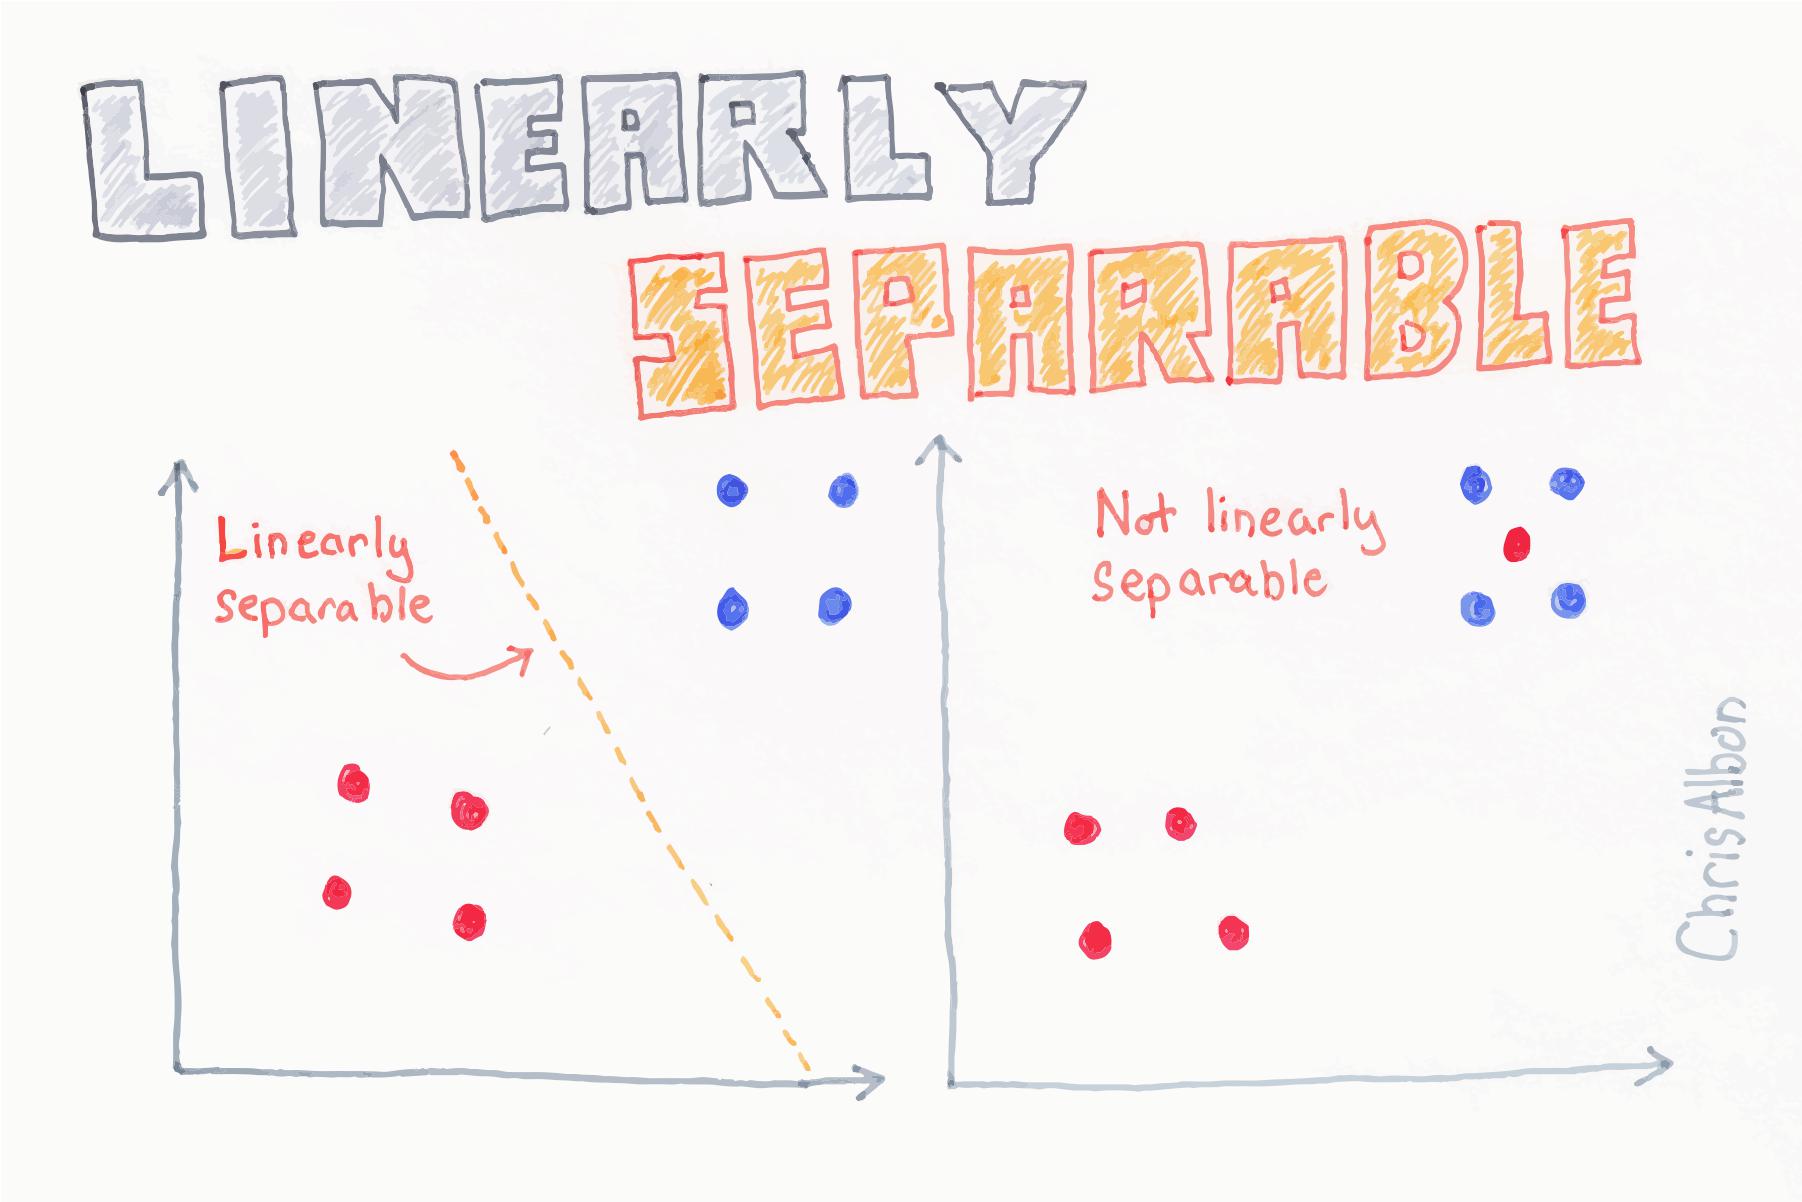 LINEARLY
SEPARABLE
Linearly
separable
Not linearly
Separable
Chris Albon